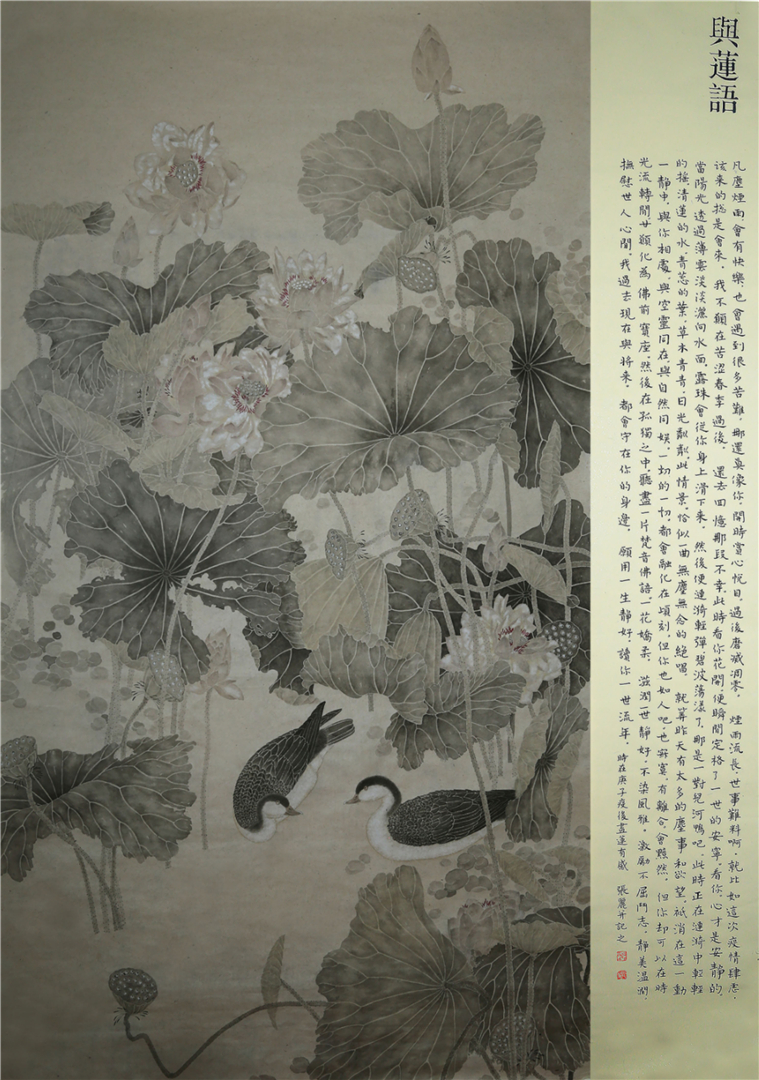 與蓮語
凡塵煙雨會有快樂，也會遇到很多苦難，那還真像你，開時賞心悅目，過後磨滅凋零，煙雨流長，世事難料啊，就比如這次疫情肆虐，
該來的總是會來，我不願在苦澀春季過後，還去回憶那段不幸，此時看你花開，便瞬間定格了一世的安寧，看你，心才是安靜的，
當陽光透過薄雲淡淡灑向水面，露珠會從你身上滑下來，然後便漣漪輕彈碧波蕩漾了，那是一對兒河鴨吧，此時正在漣漪中輕輕
的搖，清蓮的水，青蔥的葉，草木青青，日光粼粼，此情景，恰似一曲無塵無念的絕唱，就算昨天有太多的塵事和欲望，祇消在這一動
一靜中，與你相處，與空靈同在，與自然同娛，一切的一切，都會融化在頃刻，但你也如人吧，也寂寞，有離合，會黯然，但你却可以在時
光流轉間甘願化為佛前寶座，然後在孤獨之中，聽盡一片梵音佛語，一花嬌柔，滋潤一世靜好，不染風雅，激勵不屈鬥志，靜美溫潤，
撫慰世人心間，我過去現在與將來，都會守在你的身邊，願用一生靜好，讀你一世流年，時在庚子疫後畫蓮有感 張麗并記之